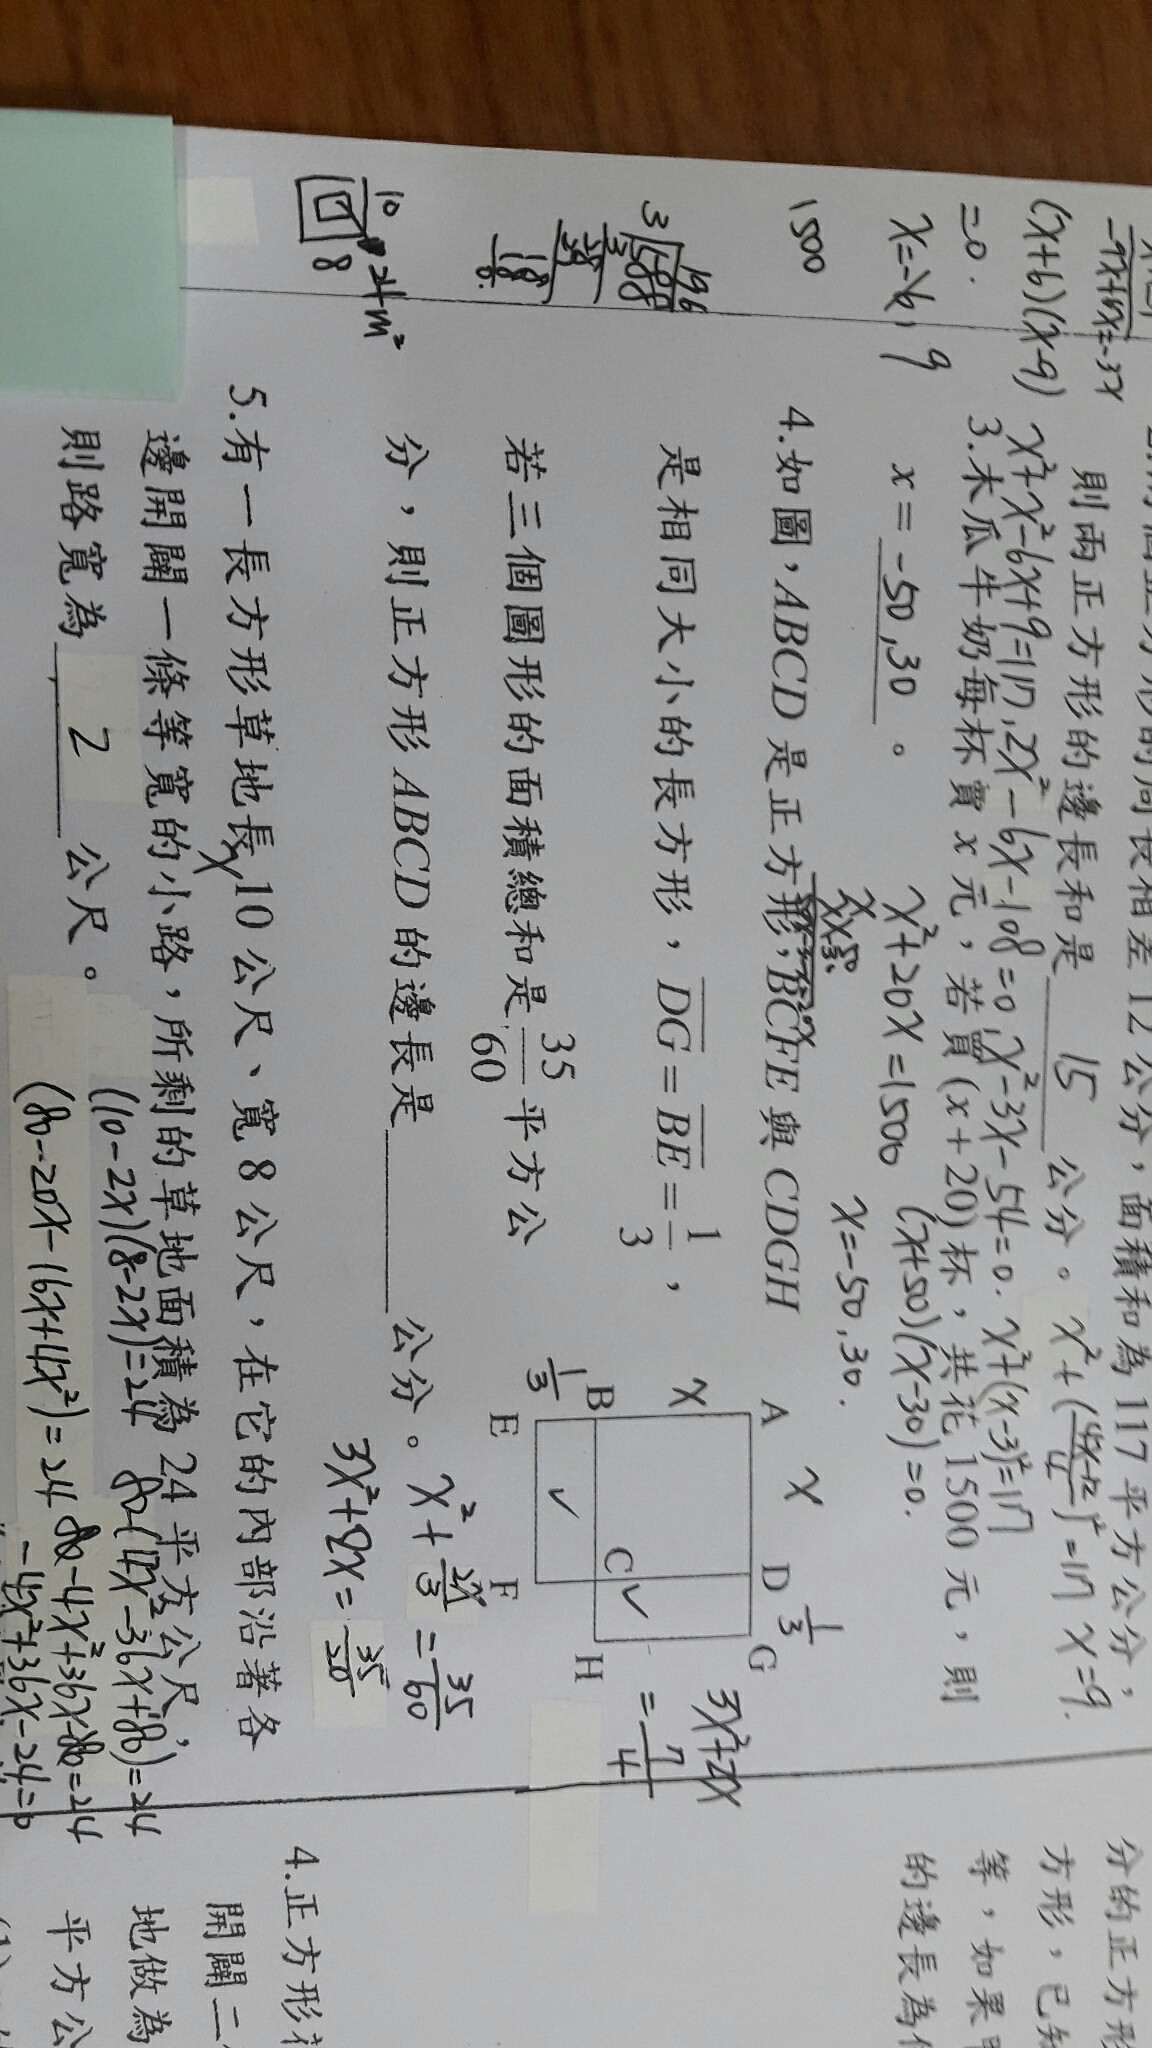 則兩正方形的邊長和是 15 公分。 x²+ =117 x=9.
x²+x²-6x+9=117, 2x²-6x-108=0, x²-3x-54=0. x²+(x-3)²=117
(x+6)(x-9)
=0.
x=-6, 9
3.木瓜牛奶每杯賣 x 元,若買(x+20)杯,共花 1500 元,則
x = -50,30 。
x²+20x=1500 (x+50)(x-30)=0.
x=-50,30.
1500
4.如圖,ABCD 是正方形,BCFE 與 CDGH
是相同大小的長方形,DG = BE = 1/3 ,
若三個圖形的面積總和是 35/60 平方公
分,則正方形 ABCD 的邊長是 公分。
A x D 1/3 G
x
B C H
1/3
E F
3x²+2x
= 7/4
x²+ 2x/3 = 35/60
3x²+2x= 35/20
196
3 588
10
8 24m²
5.有一長方形草地長 10 公尺、寬 8 公尺,在它的內部沿著各
邊開闢一條等寬的小路,所剩的草地面積為 24 平方公尺,
則路寬為 2 公尺。
(10-2x)(8-2x)=24
(80-20x-16x+4x²)=24
80-(4x²-36x+80)=24
80-4x²+36x-80=24
-4x²+36x-24=0
分的正方形
方形,已知
等,如果甲
的邊長為
4.正方形
開闢二
地做為
平方公